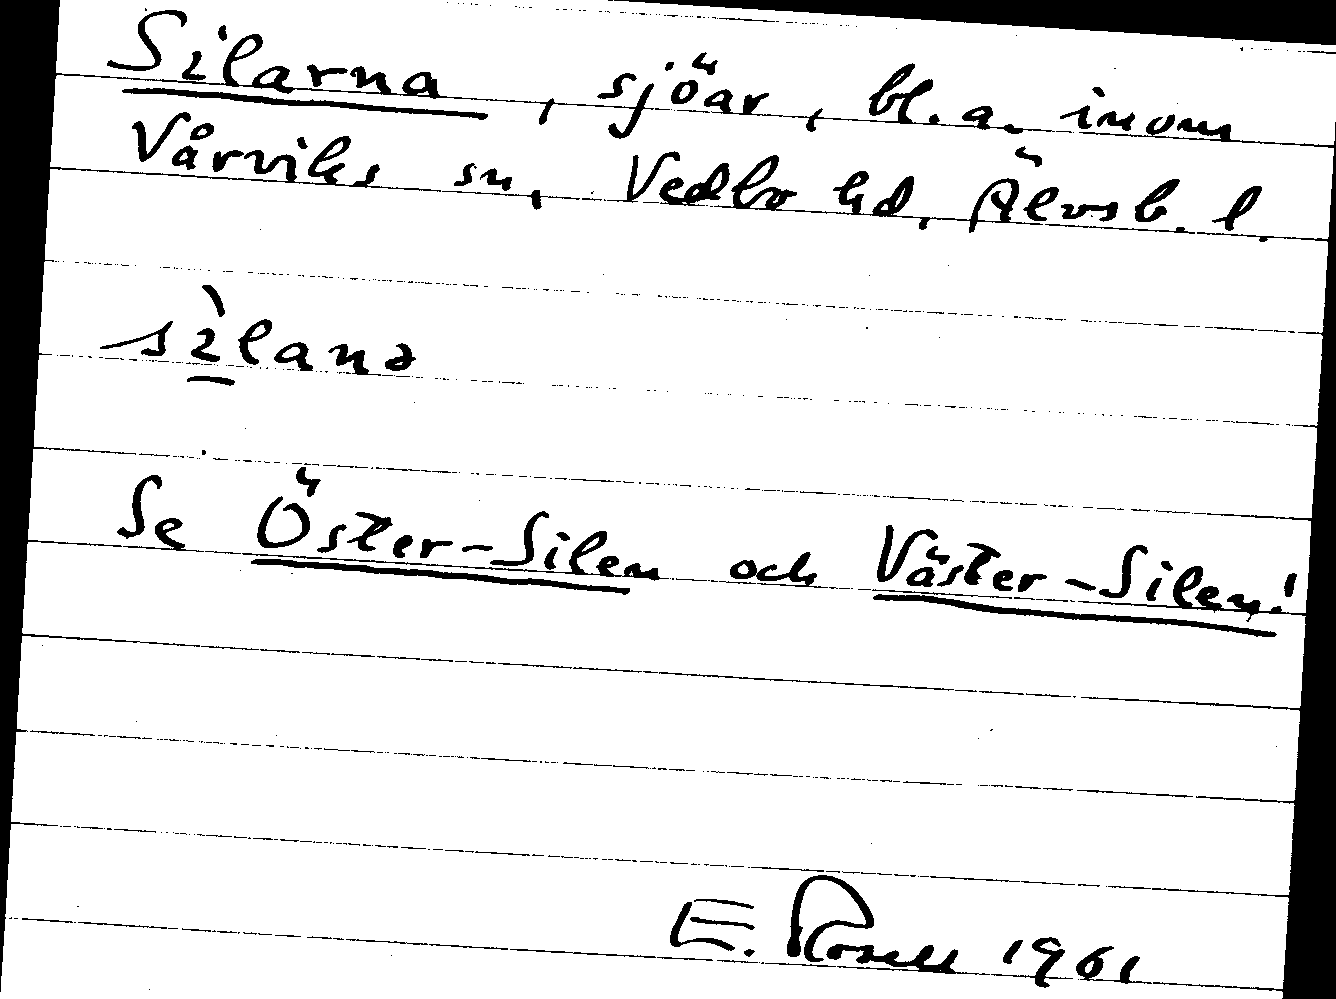 Silarna, sjöar, bl.a. inom
Vårviks sn, Vedbo hd, Älvsb. l.
sì̱lanə
Se Öster-Silen och Väster-Silen!
E. Rosell 1961